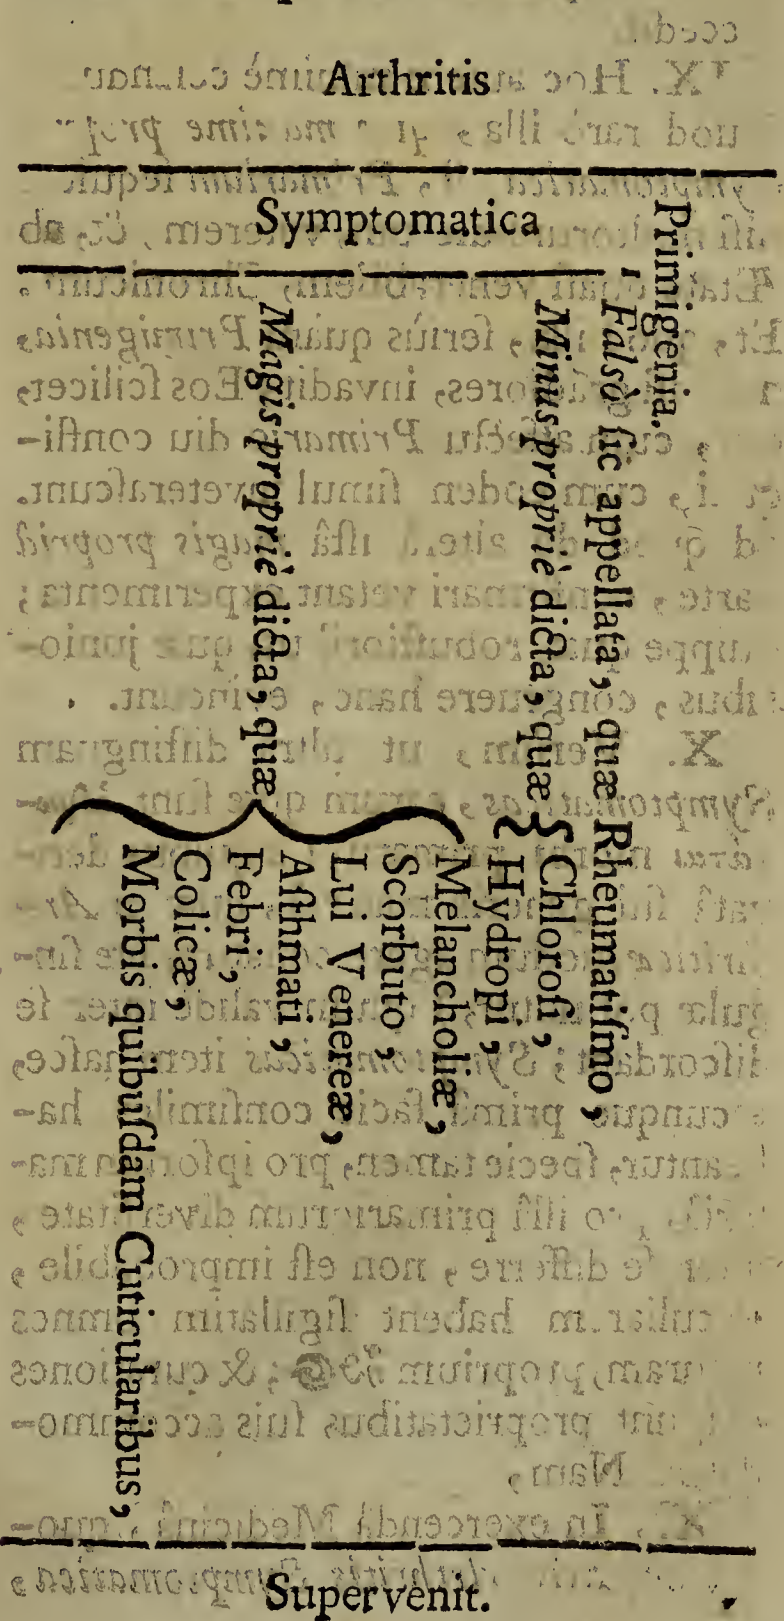 Arthritis
Symptomatica
Primigenia.
Falsò ſic appellata, quæ Rheumatiſmo,
Minus propriè dicta, quæ { Chloroſi,
Hydropi,
Magis propriè dicta, quæ
Melancholiæ,
Scorbuto,
Lui Venereæ,
Aſthmati,
Febri,
Colicæ,
Morbis quibuſdam Cuticularibus,
Supervenit.